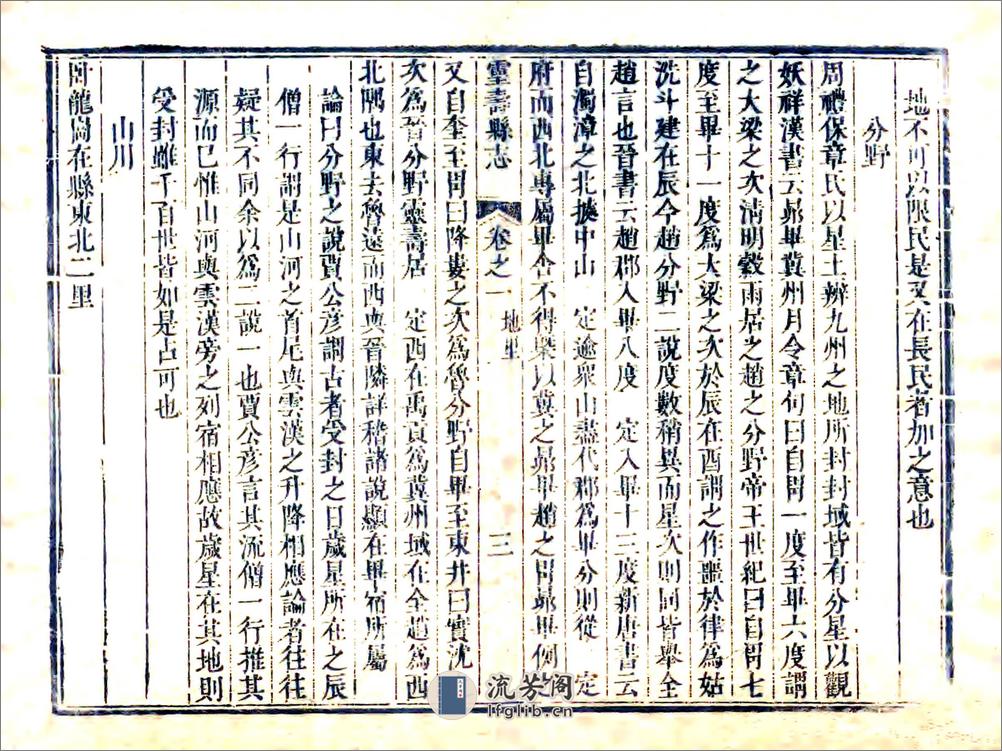 地不可以限民是又在長民者加之意也
分野
周禮保章氏以星土辨九州之地所封封域皆有分星以觀
妖祥漢書云昴畢冀州月令章句曰自胃一度至畢六度謂
之大梁之次淸明穀雨居之趙之分野帝王世紀曰自胃七
度至畢十一度爲大梁之次於辰在酉謂之作噩於律爲姑
洗斗建在辰今趙分野二說度數稍異而星次則同皆舉全
趙言也晉書云趙郡入畢八度 定入畢十三度新唐書云
自濁漳之北據中山 定逾衆山盡代郡爲畢分則從 定
府而西北專屬畢舍不得槩以冀之昴畢趙之胃昴畢例之
靈壽縣志 卷之一 地里 三
又自奎至胃曰降婁之次爲魯分野自畢至東井曰實沈
次爲晉分野靈壽居 定西在禹貢爲冀州域在全趙爲西
北隅也東去魯遠而西與晉隣詳稽諸說顯在畢宿所屬
論曰分野之說賈公彦謂古者受封之日歲星所在之辰
僧一行謂是山河之首尾與雲漢之升降相應論者往往
疑其不同余以爲二說一也賈公彦言其流僧一行推其
源而已惟山河與雲漢旁之列宿相應故歲星在其地則
受封雖千百世皆如是占可也
山川
臥龍崗在縣東北二里
流芳阁
lfglib.cn